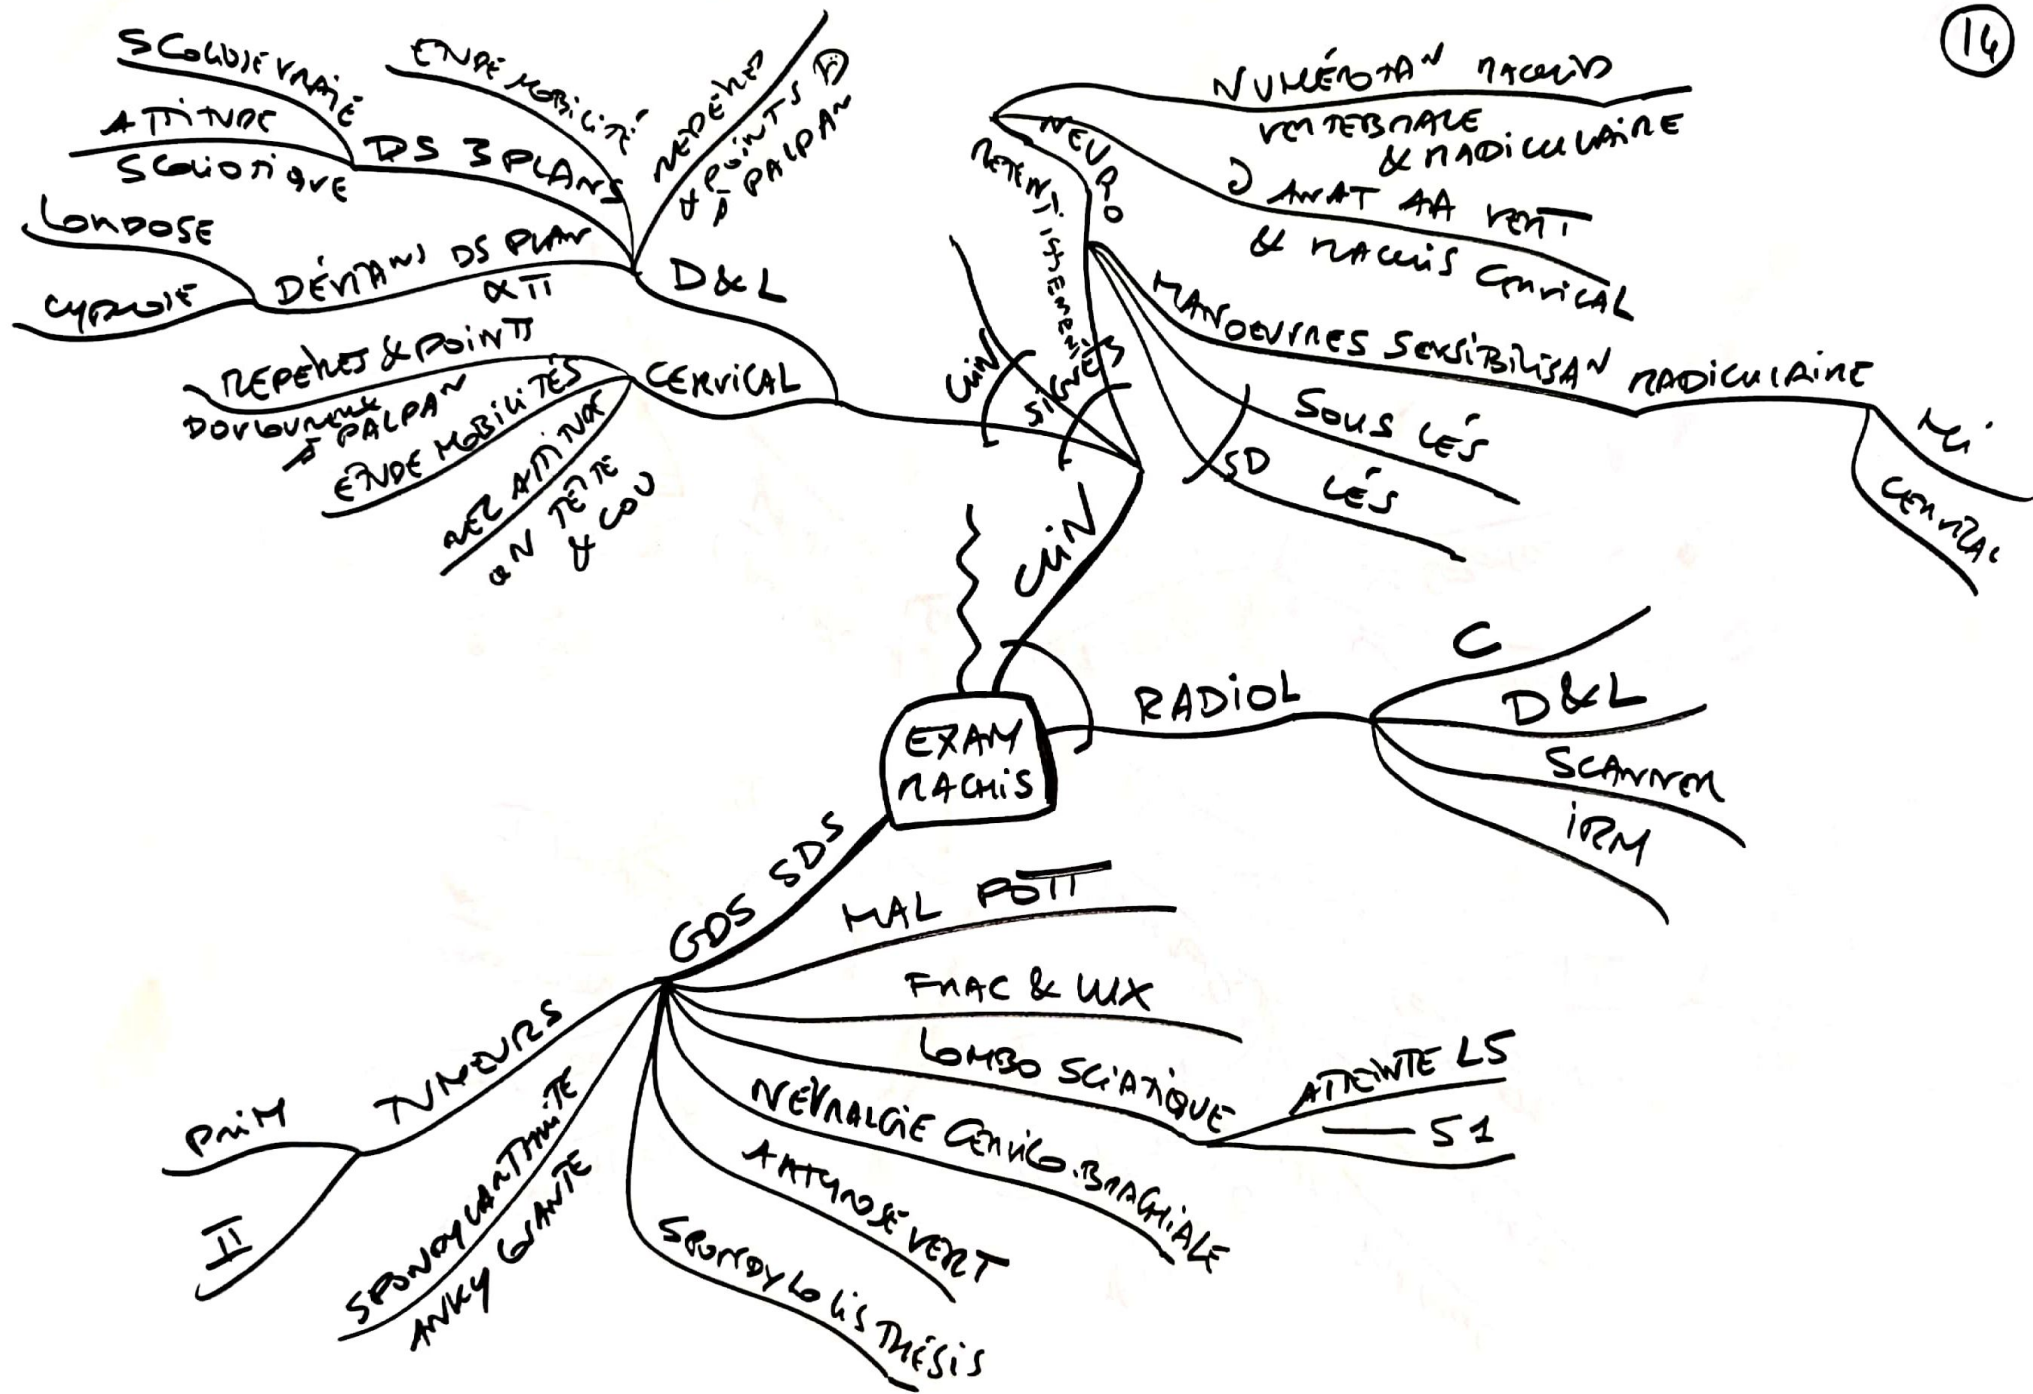 14
SCOLIOSE VRAIE
ATTITUDE
SCOLIOTIQUE
DS 3 PLANS
ETUDE MOBILITÉ
REPERES
& POINTS
À PALPAN
LORDOSE
CYPHOSE
DÉVIANS DS PLAN
D&L
REPERES & POINTS
DOULOUREUX
À PALPAN
ETUDE MOBILITÉS
REZ ATTITUDE
TETE
& COU
CERVICAL
CLIN
SIGNES
RETENTISSEMENT
NEURO
NUMÉROTAN RACHIS
VERTEBRALE
& RADICULAIRE
ANAT AA VERT
& RACHIS CERVICAL
MANOEUVRES SENSIBILISAN RADICULAIRE
MI
CERVICAL
SOUS LÉS
SD LÉS
CLIN
EXAM
RACHIS
RADIOL
C
D&L
SCANNER
IRM
GDS SDS
MAL POTT
FRAC & LUX
LOMBO SCIATIQUE
ATTEINTE L5
S1
NÉVRALGIE CERVICO.BRACHIALE
ARTHROSE VERT
SPONDYLOLISTHÉSIS
SPONDYLARTHRITE
ANKYLOSANTE
TUMEURS
PRIM
II